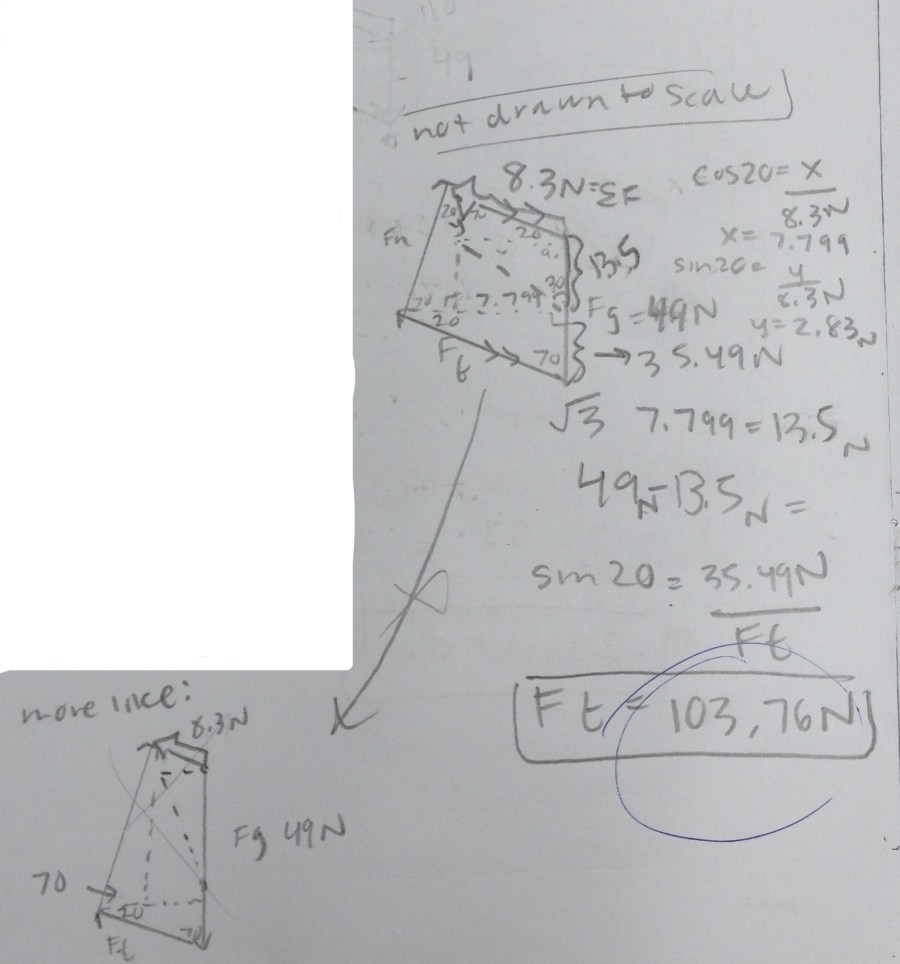 110
49
not drawn to scale
8.3N=ΣF
cos20= x
8.3N
x= 7.799
sin20= y
8.3N
y=2.83N
Fn
20
20
13.5
30
70
7.799
20
Fg = 49N
Ft
70
→35.49N
√3 7.799=13.5N
49N-13.5N=
sin 20 = 35.49N
Ft
Ft = 103,76N
more like:
8.3N
Fg 49N
70
20
70
Ft